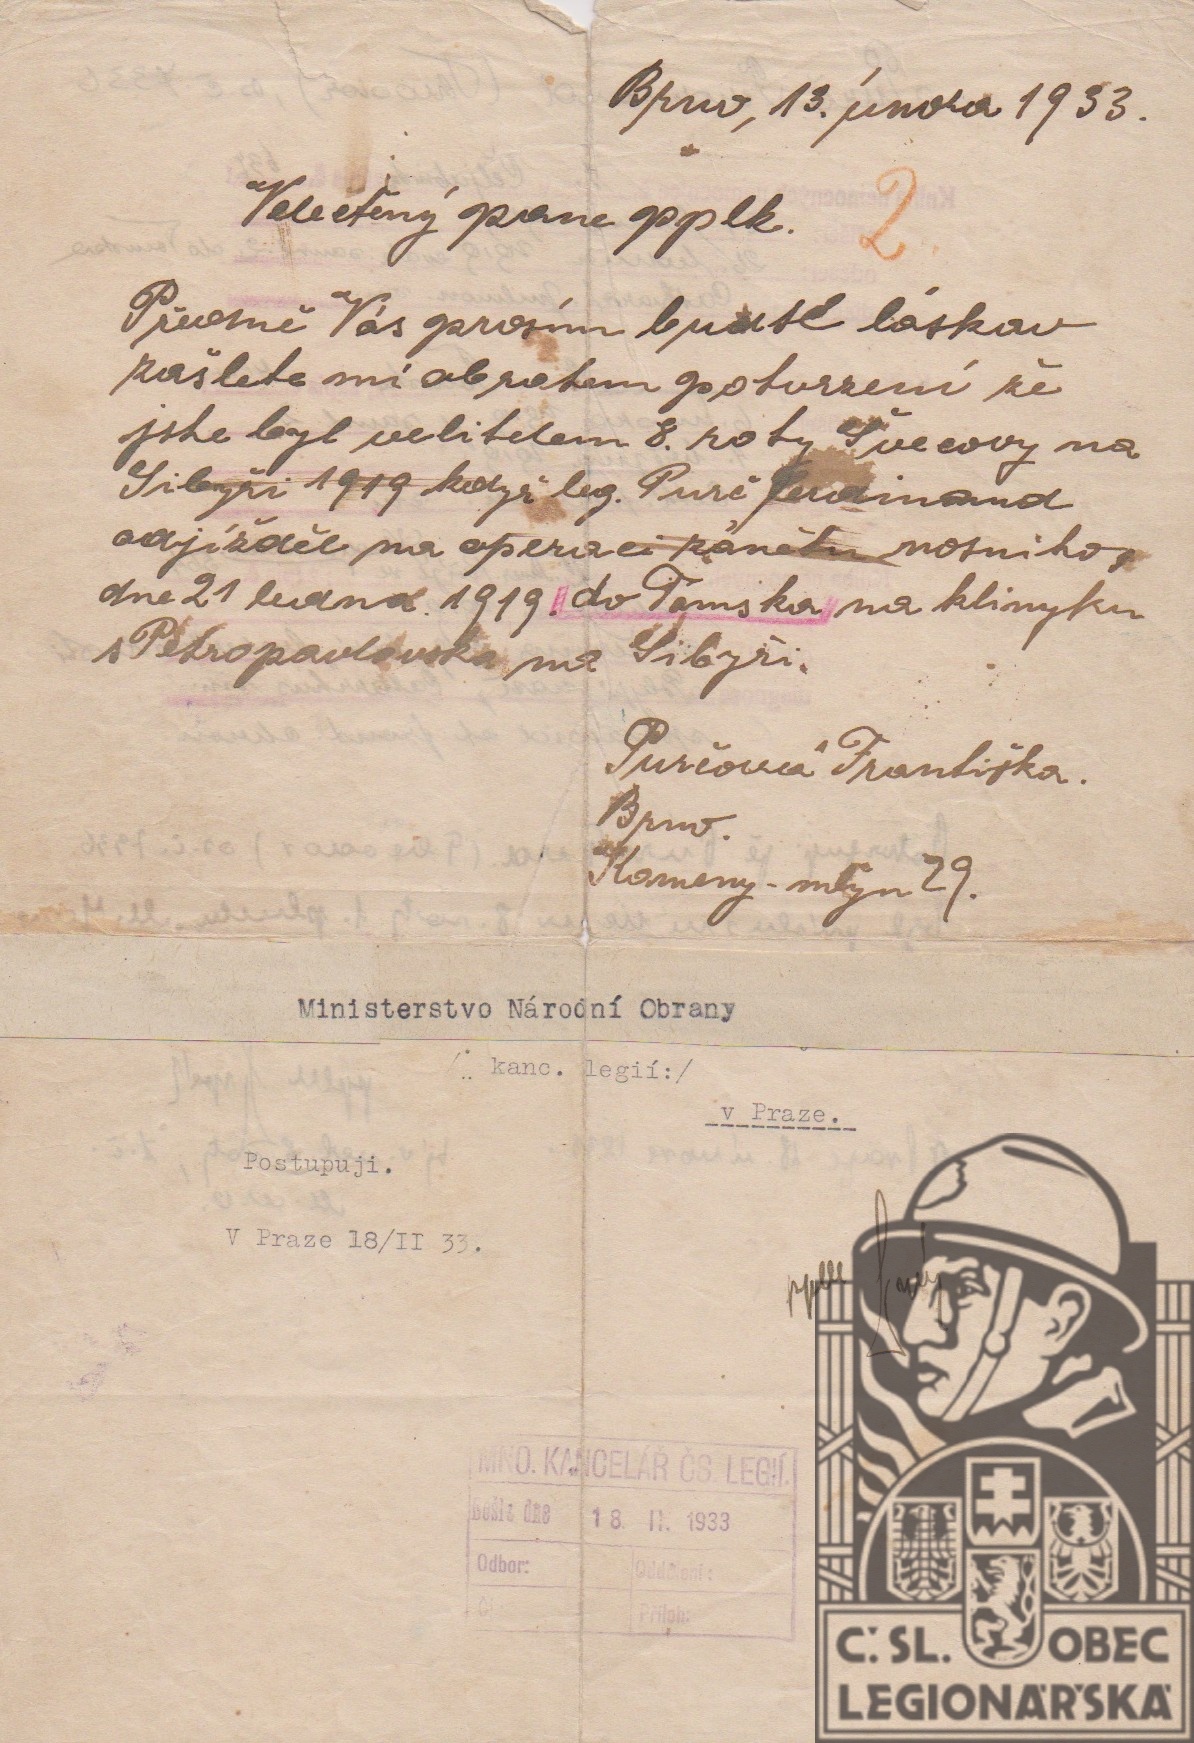 Brno, 13. února 1933.
Velectěný pane pplk.
2.
Převosně Vás prosím buďte láskav
zašlete mi obratem potvrzení že
jste byl velitelem 8. roty Švecovy na
Sibyři 1919 když leg. Purč Ferdinand
odjížděl na operaci zánětu nosního,
dne 21 ledna 1919. do Tomska na klinyku
s Petropavlavska na Sibyři.
Purčová Františka.
Brno.
Kameny-mlýn 29.
Ministerstvo Národní Obrany
/: kanc. legií:/
v Praze.
Postupuji.
V Praze 18/II 33.
pplk
MNO. KANCELÁŘ ČS. LEGIÍ.
Došlo dne 18. II. 1933
Odbor: Oddělení:
Čj Příloh:
Č.SL. OBEC
LEGIONÁŘSKÁ